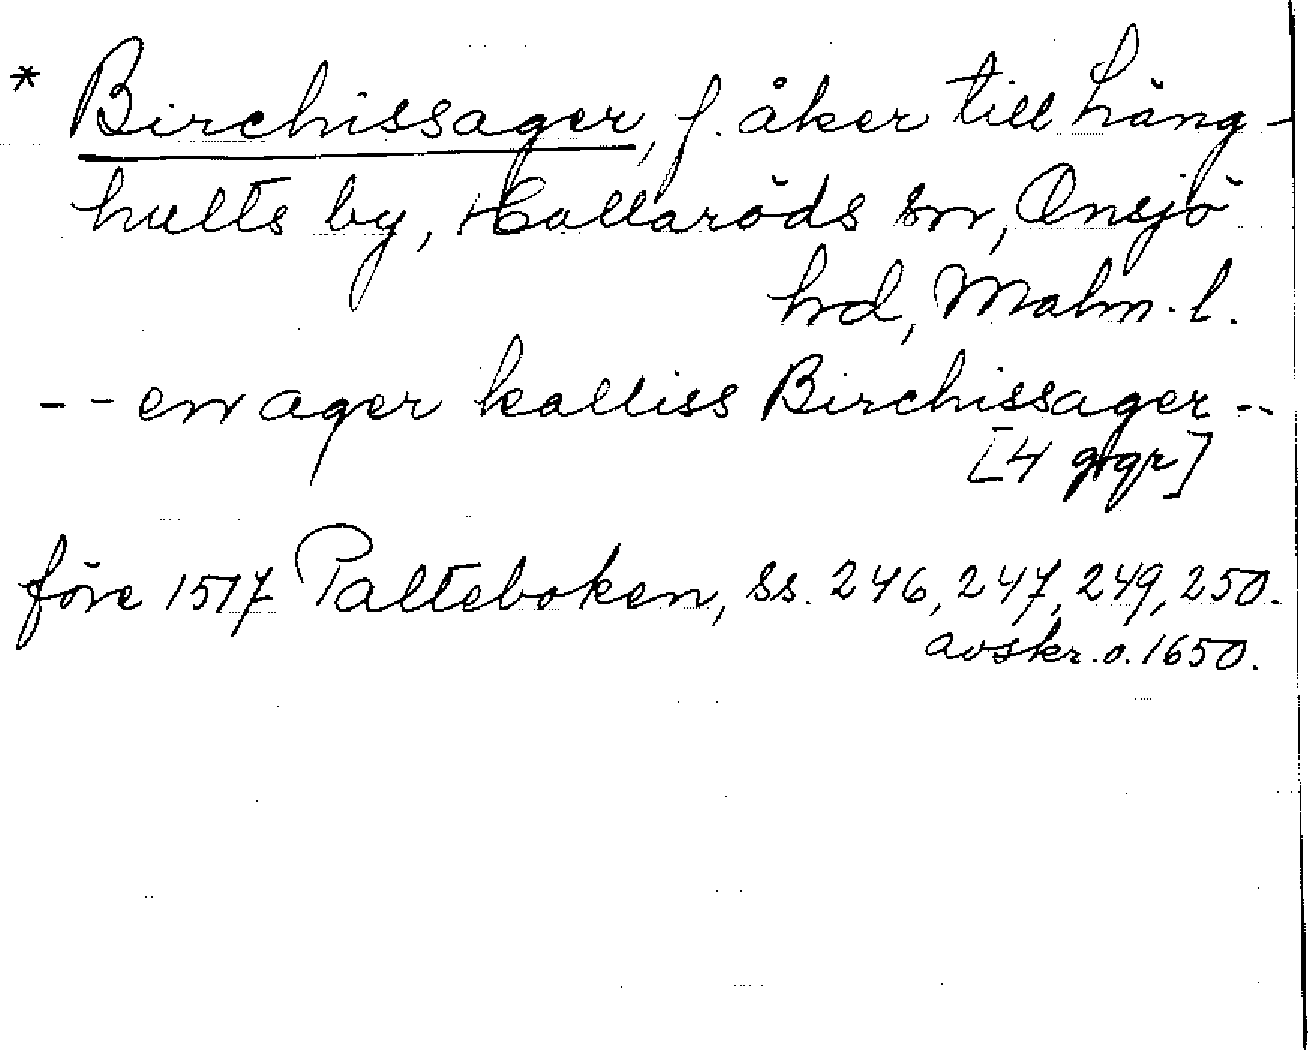 * Birchissager, f. åker till Lång-
hults by, Hallaröds sn, Onsjö
hrd, Malm. l.
-- en ager kalliss Birchissager --
[4 ggr]
före 1517 Palteboken, ss. 246, 247, 249, 250.
avskr. o. 1650.